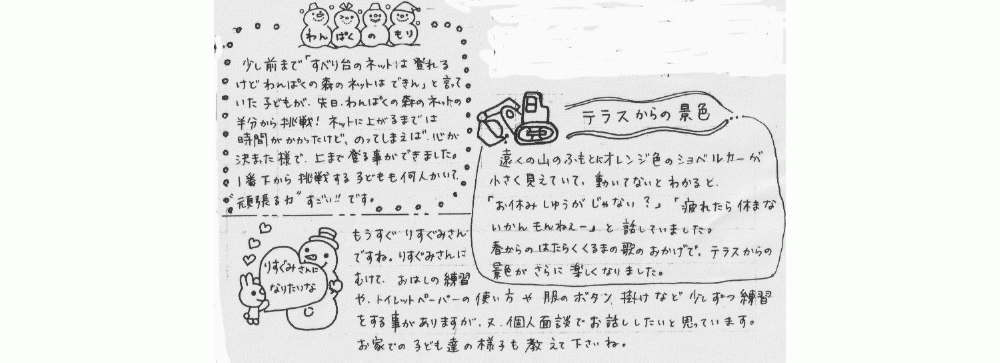 わんぱくのもり
少し前まで「すべり台のネットは登れる
けどわんぱくの森のネットはできん」と言って
いた子どもが、先日、わんぱくの森のネットの
半分から挑戦！ネットに上がるまでは
時間がかかったけど、のってしまえば、心が
決まった様で、上まで登る事ができました。
1番下から挑戦する子どもも何人かいて、
"頑張る力"すごい!!です。
テラスからの景色
遠くの山のふもとにオレンジ色のショベルカーが
小さく見えていて、動いてないとわかると、
「お休みしゅうがじゃない？」「疲れたら休まな
いかんもんねえー」と話していました。
春からのはたらくくるまの歌のおかげで、テラスからの
景色がさらに楽しくなりました。
りすぐみさんに
なりたいな
もうすぐりすぐみさん
ですね。りすぐみさんに
むけて、おはしの練習
や、トイレットペーパーの使い方や服のボタン掛けなど少しずつ練習
をする事がありますが、又、個人面談でお話ししたいと思っています。
お家での子ども達の様子も教えて下さいね。